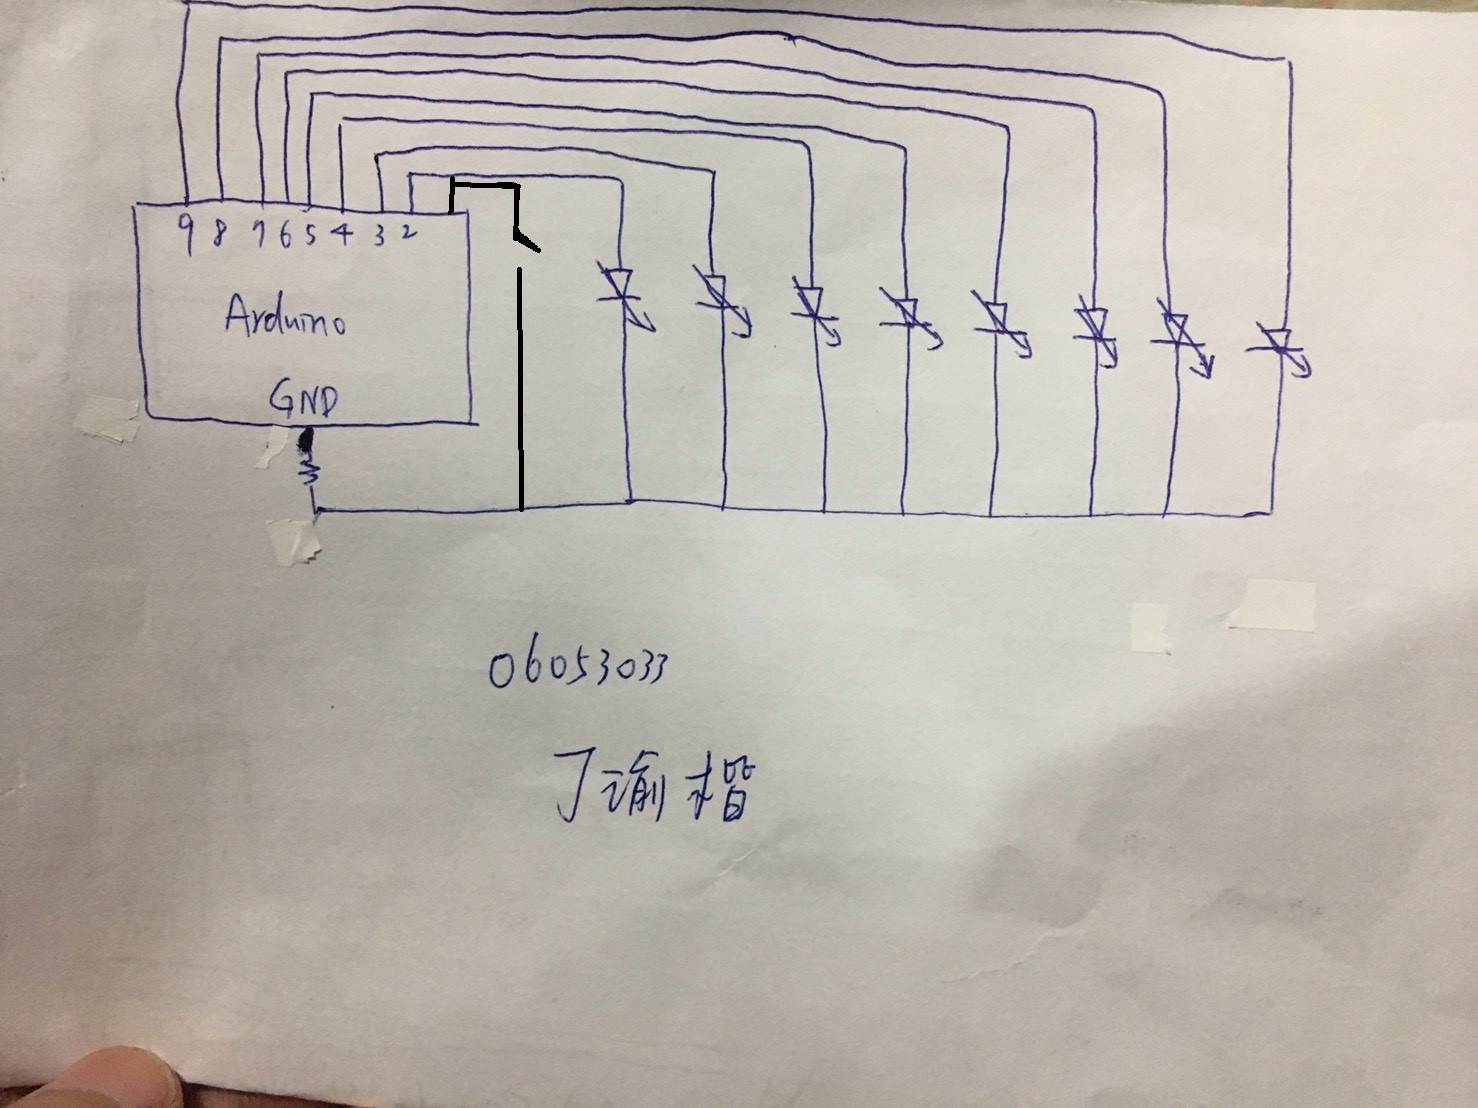 9 8 7 6 5 4 3 2
Arduino
GND
06053033
丁瑜楷